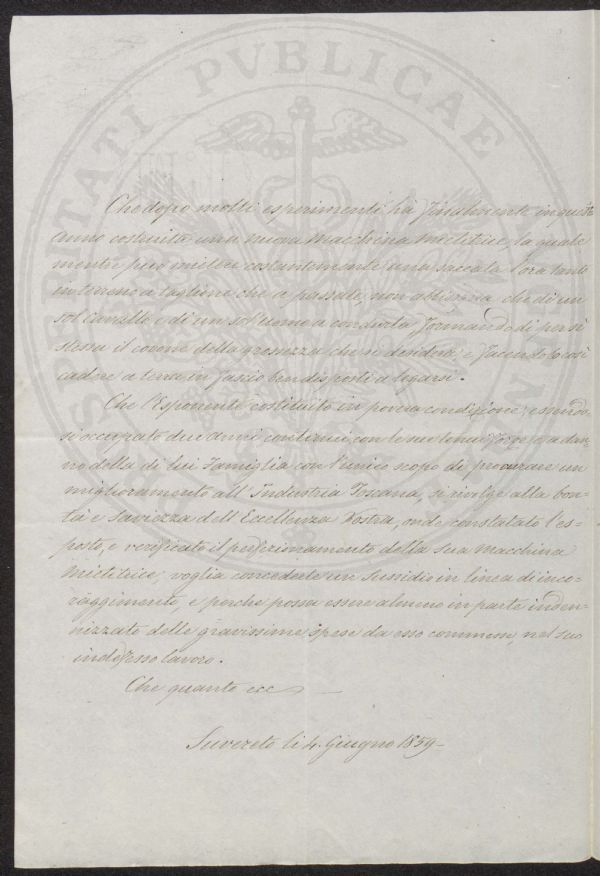 PROSPERITATI PVBLICAE
Che dopo molti esperimenti ha finalmente in questo
anno costruita una nuova Macchina Mietitrice, la quale
mentre può mietere costantemente una saccata l'ora tanto
in terreno a taglione che a passate, non abbisogna che di un
sol Cavallo e di un sol uomo a condurla, formando di per se
stessa il covone della grossezza che si desidera, e facendolo così
cadere a terra in fascio ben disposti a legarsi.
Che l'Esponente costituito in povera condizione, essendo-
si occupato due anni continui con le sue tenui forze, e a dan-
no della di lui Famiglia con l'unico scopo di procurare un
miglioramento all'Industria Toscana, si rivolge alla bon-
tà e Saviezza dell'Eccellenza Vostra, onde constatato l'es-
posto, e verificato il perfezionamento della sua Macchina
Mietitrice, voglia concederle un Sussidio in linea di inco-
raggimento, e perche possa essere almeno in parte inden-
nizzato delle gravissime spese da esso commesse, nel suo
indefesso lavoro.
Che quanto ecc
Suvereto li 4. Giugno 1859